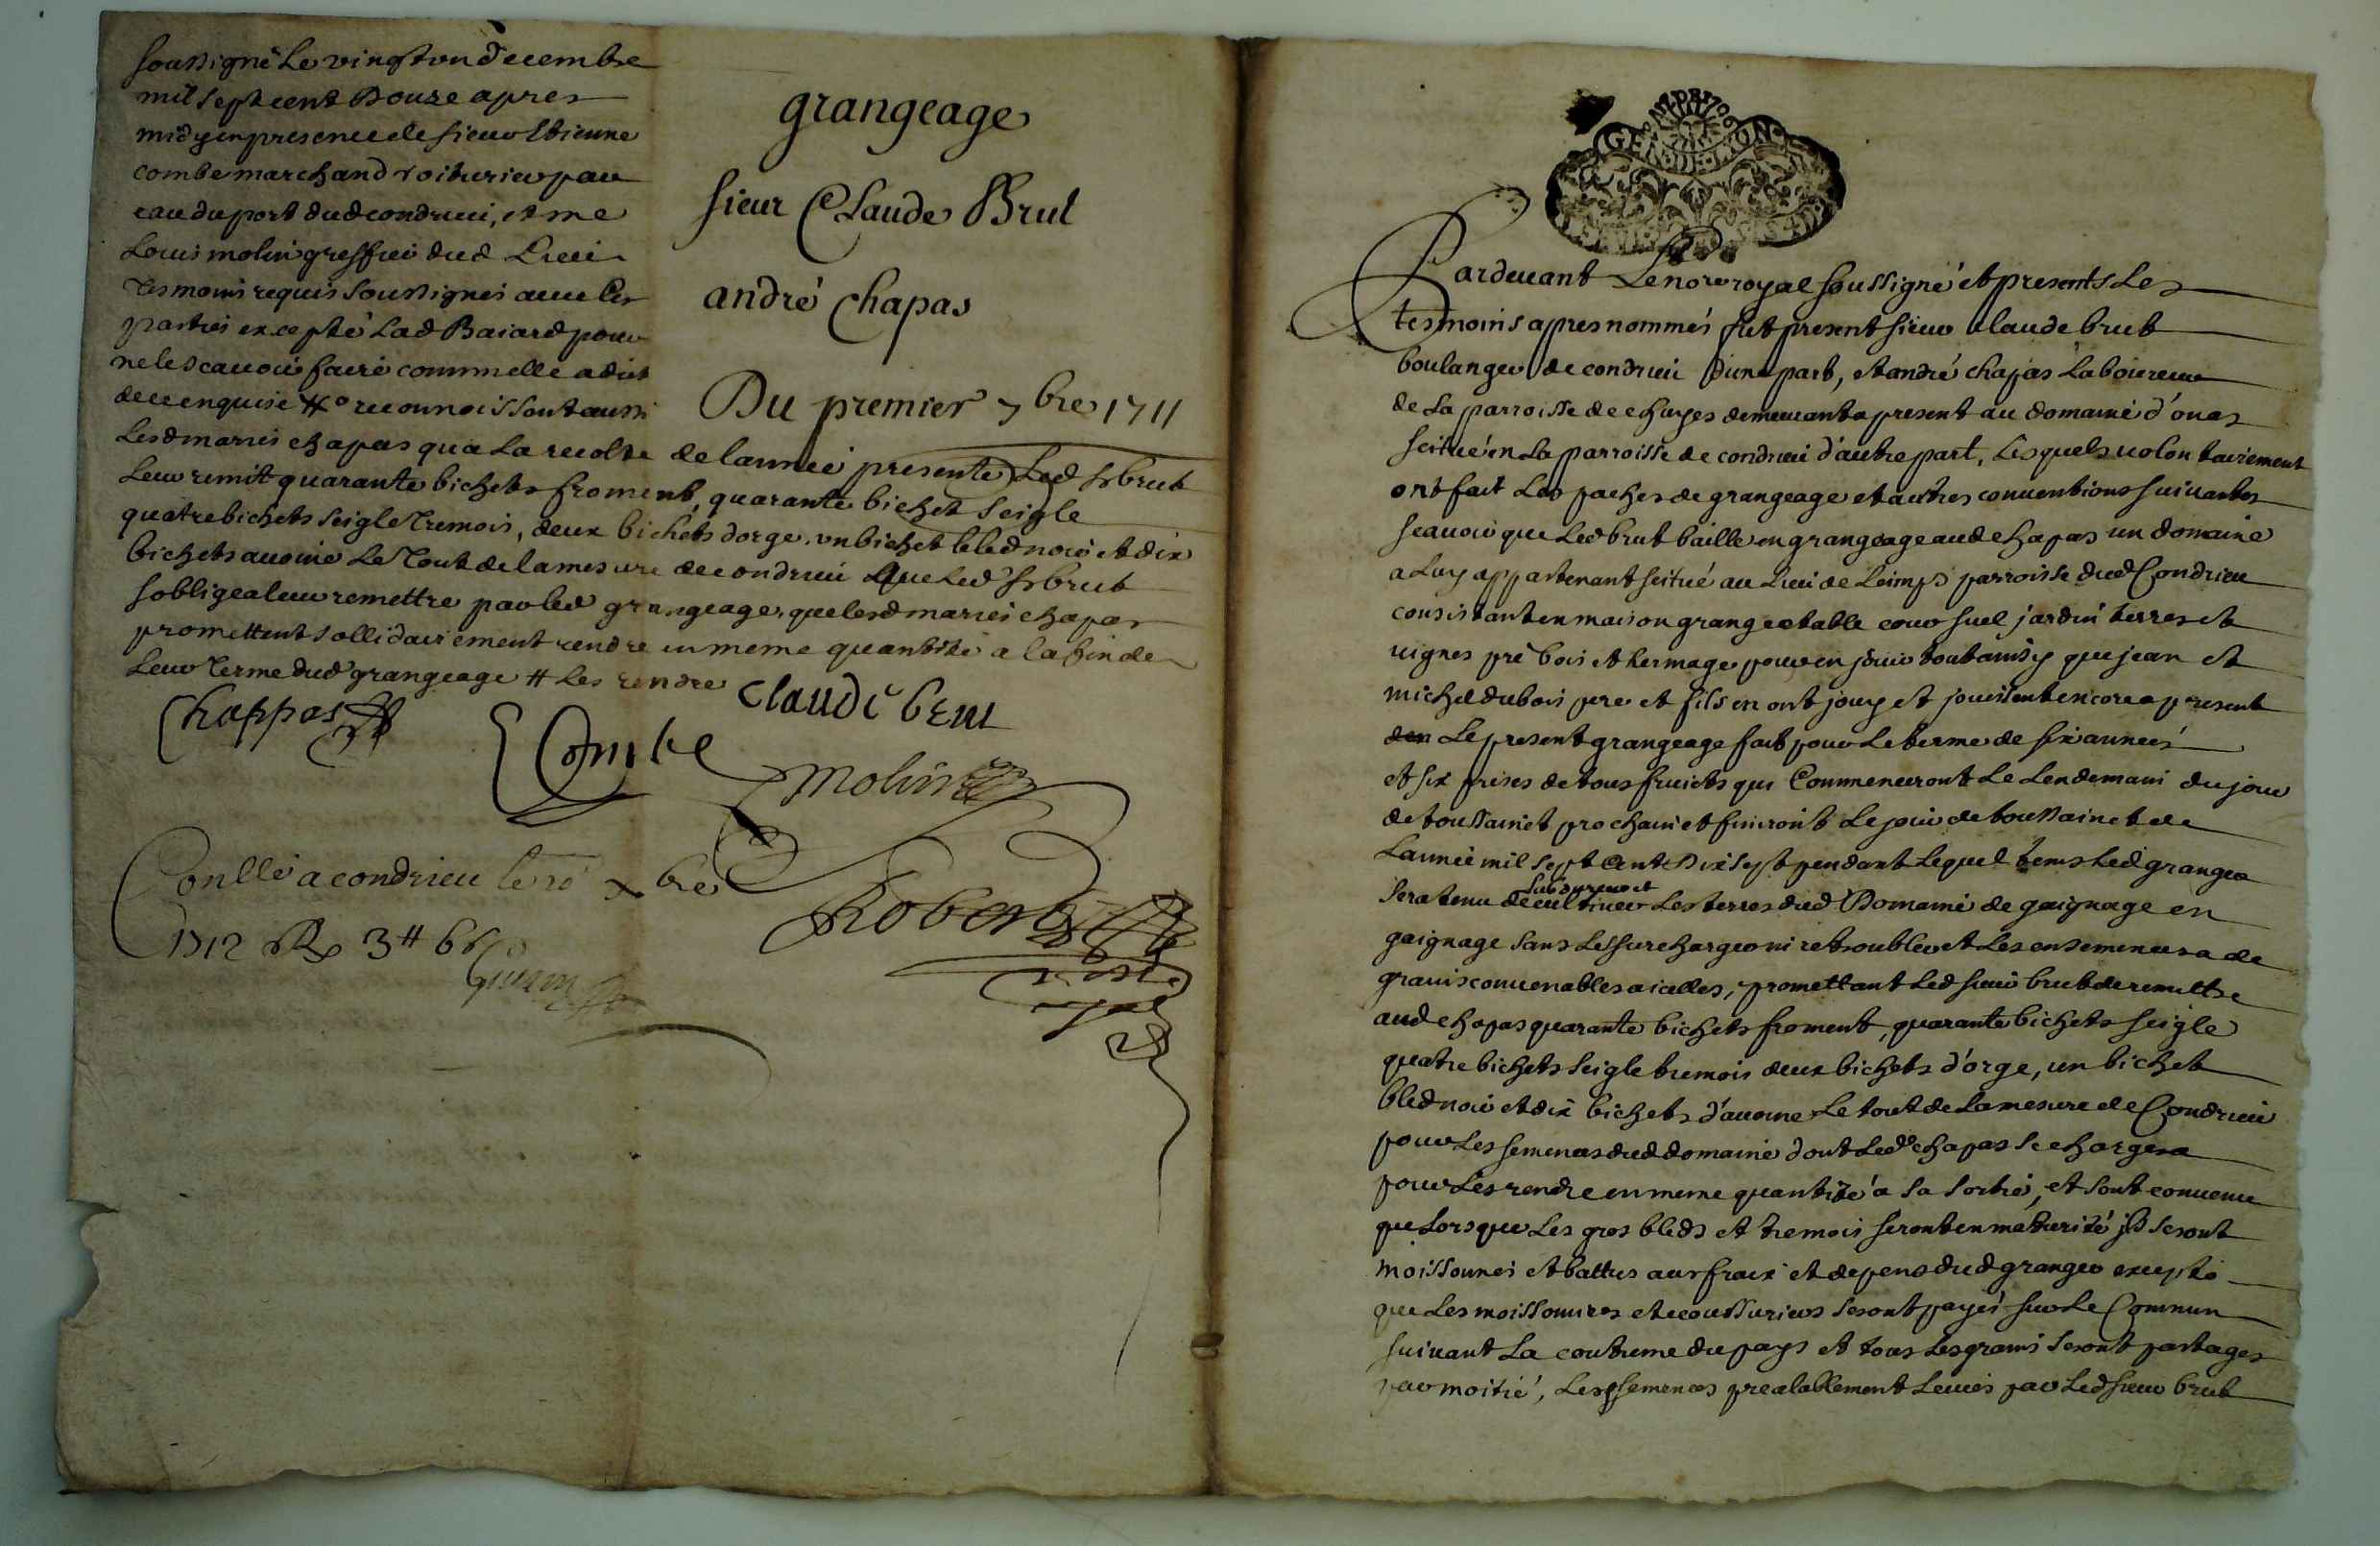 soussigné Le vingt un decembre
mil sept cent Douze apres
midy en presence de sieur Etienne
combe marchand voiturier par
eau du port dud condrieu, et me
Louis molin greffier dud Lieu
Tesmoins requis soussignes avec Les
parties excepté Lad Baiard pour
ne le scavoir faire comm elle a dit
de ce enquise # reconnoissent aussi
Lesd maries chapas qu a La recolte de lannee presente Led sr brut
Leur remit quarante bichets froment, quarante bichet seigle
quatre bichets seigle Tremois, deux bichets dorge, un bichet bled noir et dix
bichets avoine Le Tout de la mesure de condrieu que Led sr brut
sobligea leur remettre par led grangeage, que lesd maries chapas
promettent sollidairement rendre en meme quantité a la fin de
Leur Terme dud grangeage # Les rendre
Chappas
Claude brut
E Combe
molin
Conllé a condrieu le xbre
1712 R 3# 6s
Robert
grangeage
sieur Claude Brut
andré Chapas
Du premier 7bre 1711
GEN DE LYON
Pardevant Le nore royal soussigné et presents Les
tesmoins apres nommés fut present sieur claude brut
boulanger de condrieu d'une part, et andré chapas Laboureur
de La parroisse de chuyes demeurant a present au domaine d'onas
scitué en La parroisse de condrieu d'autre part, Lesquels volontairement
ont fait Les paches de grangeage et autres conventions suivantes
scavoir que Led brut baille en grangeage aud chapas un domaine
a Luy appartenant scitué au Lieu de Leimps parroisse dud Condrieu
consistant en maison grange estable cour suel jardin terres et
vignes pré bois et hermage pour en jouir tout ainsy que jean et
michel dubois pere et fils en ont jouy et jouissent encore a present
Le present grangeage fait pour Le terme de six années
et six prises de tous fruicts qui Commenceront Le Lendemain du jour
de toussainct prochain et finiront Le jour de toussainct de
Lannée mil sept Cent Dix sept pendant Lequel tems Led granger
sera tenu de cultiver Les terres dud Domaine de gaignage en
gaignage sans Les surcharger ni retroubler et Les ensemencera de
grains convenables a icelles, promettant Led sieur brut de remettre
aud chapas quarante bichets froment, quarante bichets seigle
quatre bichets seigle tremois deux bichets d'orge, un bichet
bled noir et dix bichets d'avoine Le tout de La mesure de Condrieu
pour Les semences dud domaine dont Led chapas se chargera
pour Les rendre en meme quantité a sa sortie, et sont convenu
que Lorsque Les gros bleds et tremois seront en maturité ils seront
moissonnés et battus aux fraix et depens dud granger excepté
que Les moissonures et ecoussuriers seront payés sur Le Commun
suivant La coutume du pays et tous Les grains seront partages
par moitié, Les semences prealablement Levées par Led sieur brut